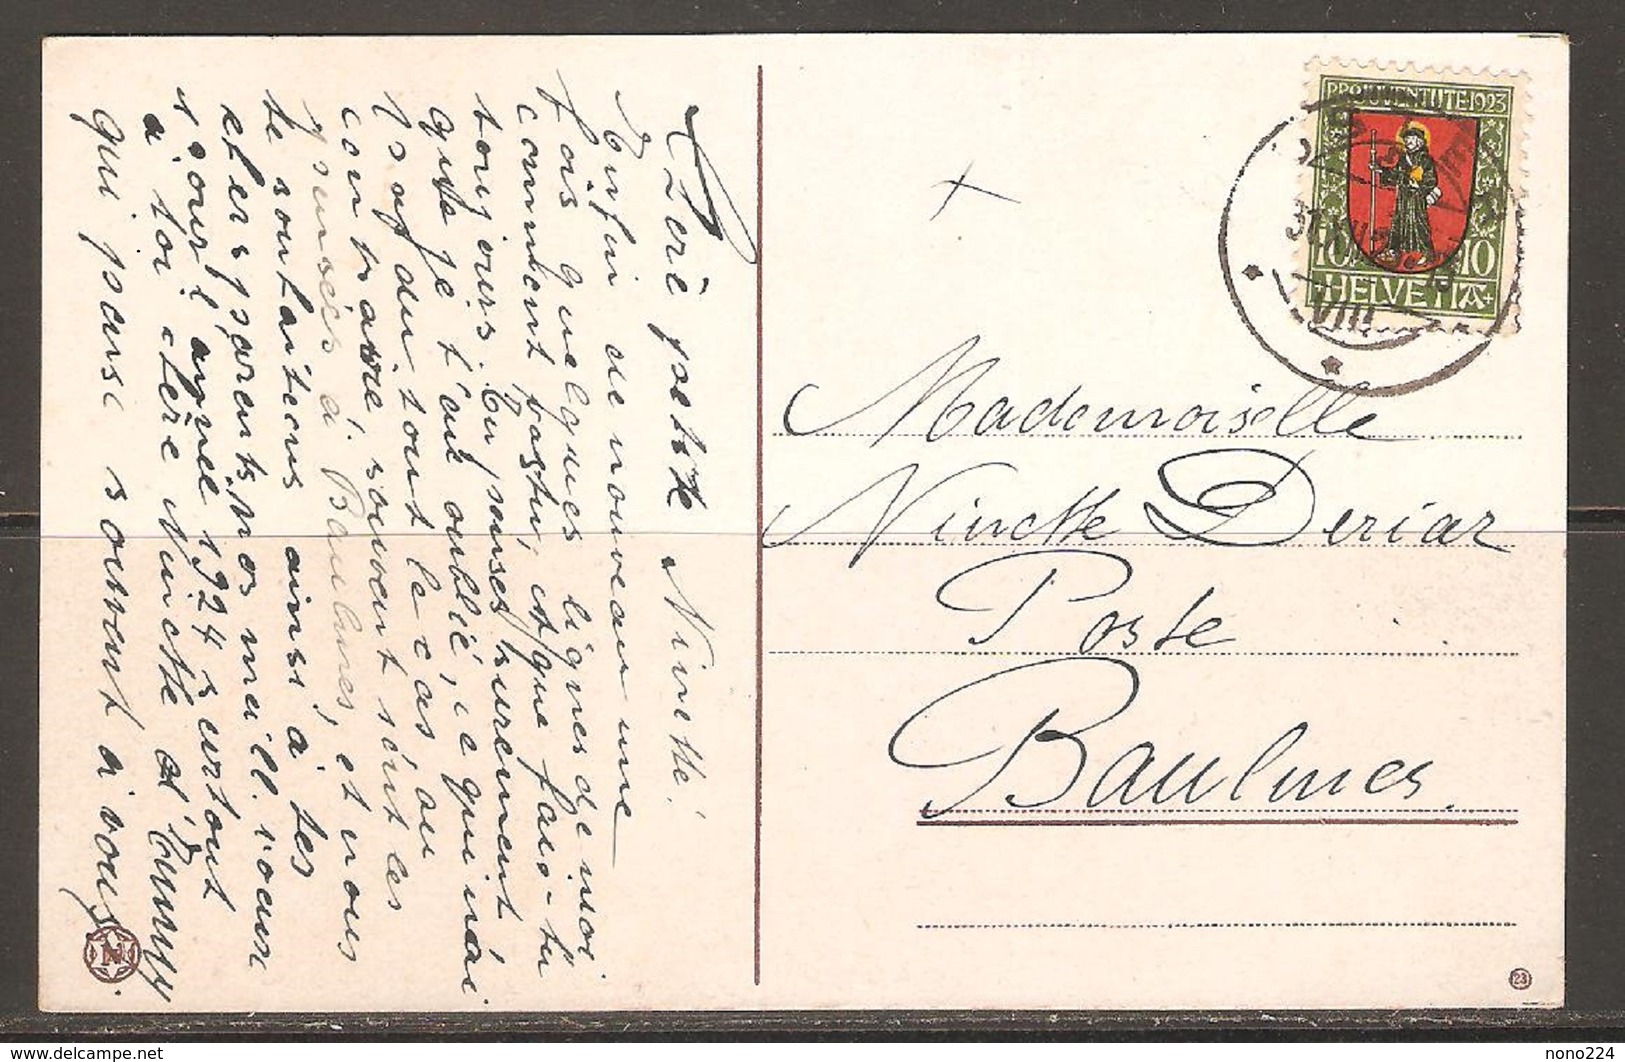 Chère petite Ninette!
Enfin de nouveau une
fois quelques lignes de moi
comment vastu, et que fais-tu
toujours. Tu penses surement
que je t'ai oublié, ce qui n'ai
pas du tout le cas, au
contraire, souvent sont les
pensées à Baulmes, et nous
te souhaitons ainsi à tes
chers parents, nos meill. vœux
pour l'année 1924 surtout
à toi chère Ninette d'Emmy
qui pense souvent à vous.
PRO JUVENTUTE 1923
10 10
HELVETIA
31.XII.23
VIII
Mademoiselle
Ninette Deriaz
Poste
Baulmes.
N
23
delcampe.net
nono224